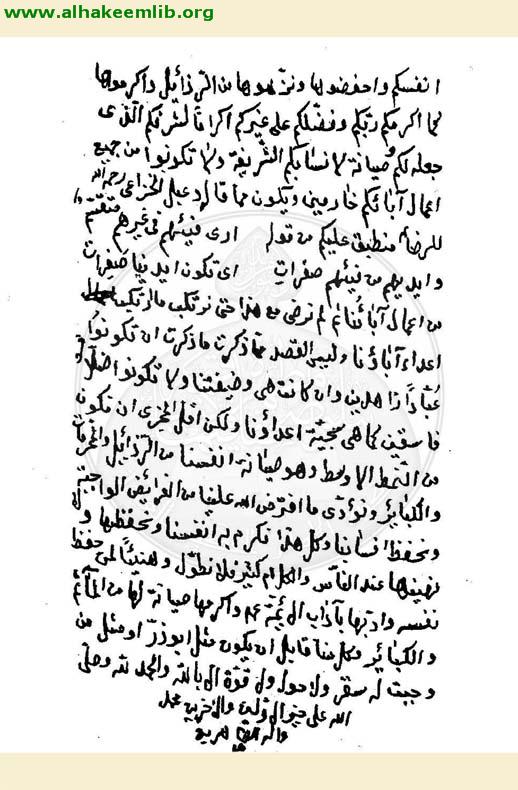 www.alhakeemlib.org
انفسكم واحفضوها ونزهوها من الرذائل واكرموها
كما اكرمكم ربكم وفضّلكم على غيركم اكراماً لشرفكم الذى
جعله لكم صيانة لانسابكم الشريفة ولا تكونوا من جميع
اعمال آبائكم خارجين ويكون مما قاله دعبل الخزاعى رحمه الله
للرضا منطبق عليكم من قوله ارى فيئهم فى غيرهم متقسّماً
وايديهم من فيئهم صفرات اى تكون ايدينا صفرات
من اعمال آبائنا ثم لم نرضى مع هذا حتى نرتكب ما ارتكب
اعداء آباؤنا وليس القصد مما ذكرت ما ذكرت ان تكونوا
عبّاداً زاهدين وان كانت هى وضيفتنا ولا تكونوا ضلال
فاسقين كما هى سجيّة اعداؤنا ولكن اقل المجزى ان تكون
من النمط الاوسط وهو صيانة انفسنا من الرذائل والمحرمات
والكبائر ونؤدّى ما افترض الله علينا من الفرائض الواجبة
ونحفظ انسابنا وكل هذا نكرم به انفسنا ونحفظها ولا
نهينها عند الناس والكلام كثير فلا نطوّل وهنيئاً لمن حفظ
نفسه وادبها بآداب الائمة عم واكرمها صيانة لها من المآثم
والكبائر وكل منا قابل ان يكون مثل ابوذرّ او مثل من
وجبت له سقر ولا حول ولا قوّة الا بالله والحمد لله وصلى
الله على خير الاولين والاخرين محمد
واله